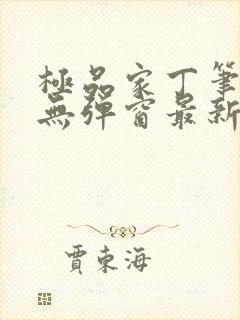 極品家丁筆
無彈窗最新
賈東海